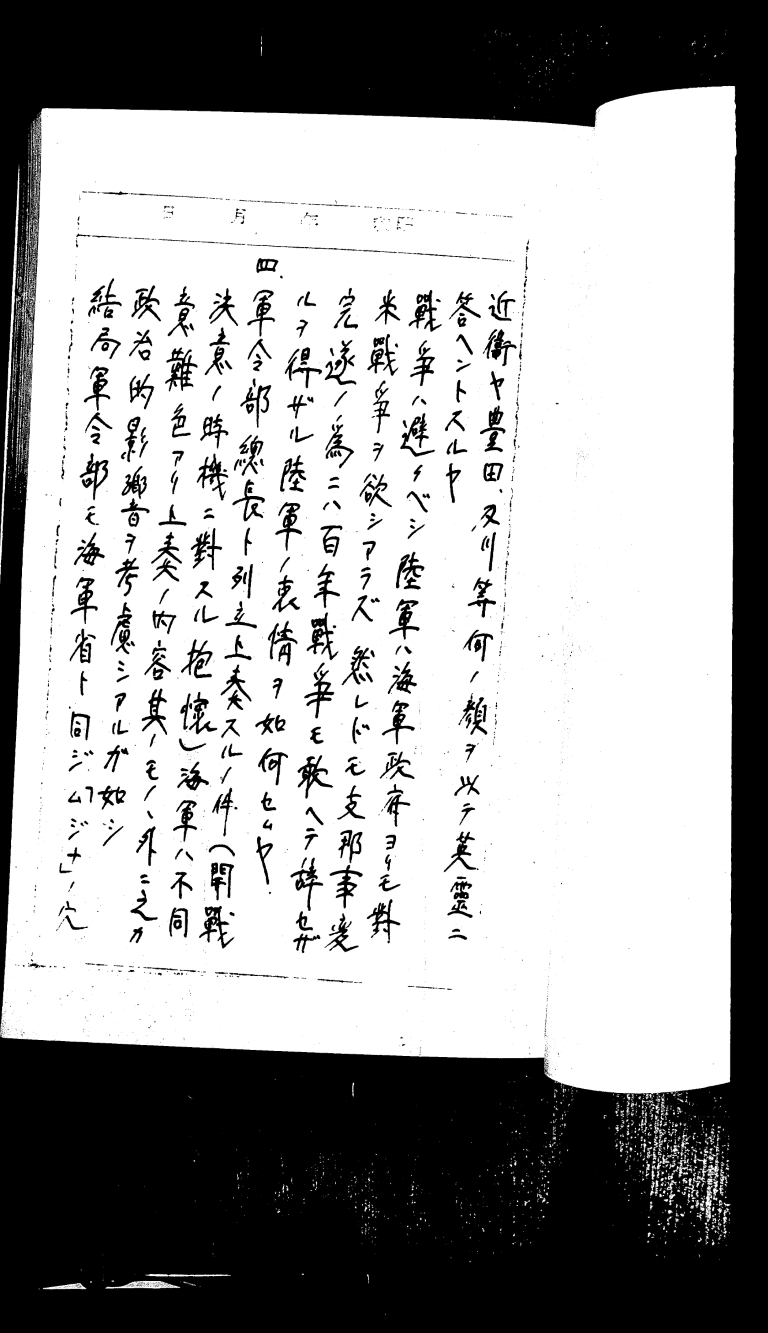 日 月 年
近衛ヤ豊田、及川等何ノ顔ヲ以テ英霊ニ
答ヘントスルヤ
戰爭ハ避クベシ 陸軍ハ海軍政府ヨリモ對
米戰爭ヲ欲シアラズ 然レドモ支那事変
完遂ノ為ニハ百年戰爭モ敢ヘテ辞セザ
ルヲ得ザル陸軍ノ衷情ヲ如何セムヤ
四、
軍令部總長ト列立上奏スルノ件(開戰
決意ノ時機ニ對スル抱懐)海軍ハ不同
意難色アリ上奏ノ内容其ノモノノ外ニ之ガ
政治的影響ヲ考慮シアルガ如シ
結局軍令部モ海軍省ト同ジ「ムジナ」ノ穴